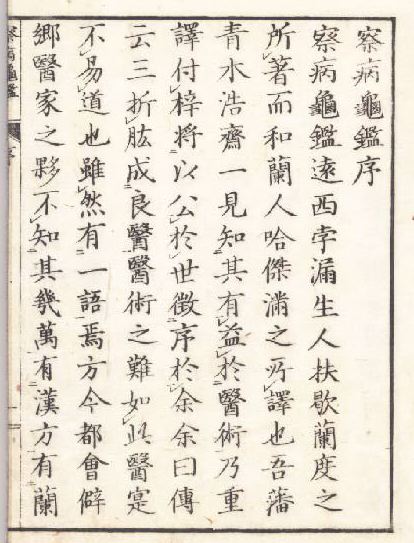 察病龜鑑序
察病龜鑑遠西孛漏生人扶歇蘭度之
所著而和蘭人哈傑満之所譯也吾藩
青水浩齋一見知其有益於醫術乃重
譯付梓將以公於世徴序於余余曰傳
云三折肱成良醫醫術之難如此醫寔
不易道也雖然有一語焉方今都會僻
郷醫家之夥不知其幾萬有漢方有蘭
察病龜鑑
序